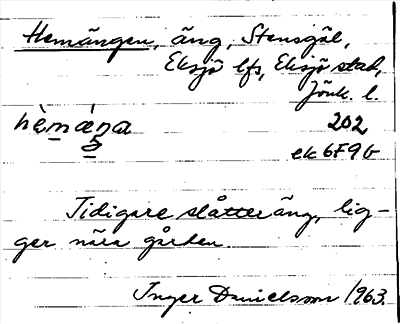 Hemängen, äng, Stensgöl,
Eksjö lfs, Eksjö stad,
Jönk. l.
hèmæ̀ŋa 202
ek 6F9b
Tidigare slåtteräng, lig-
ger nära gården.
Inger Danielsson 1963.